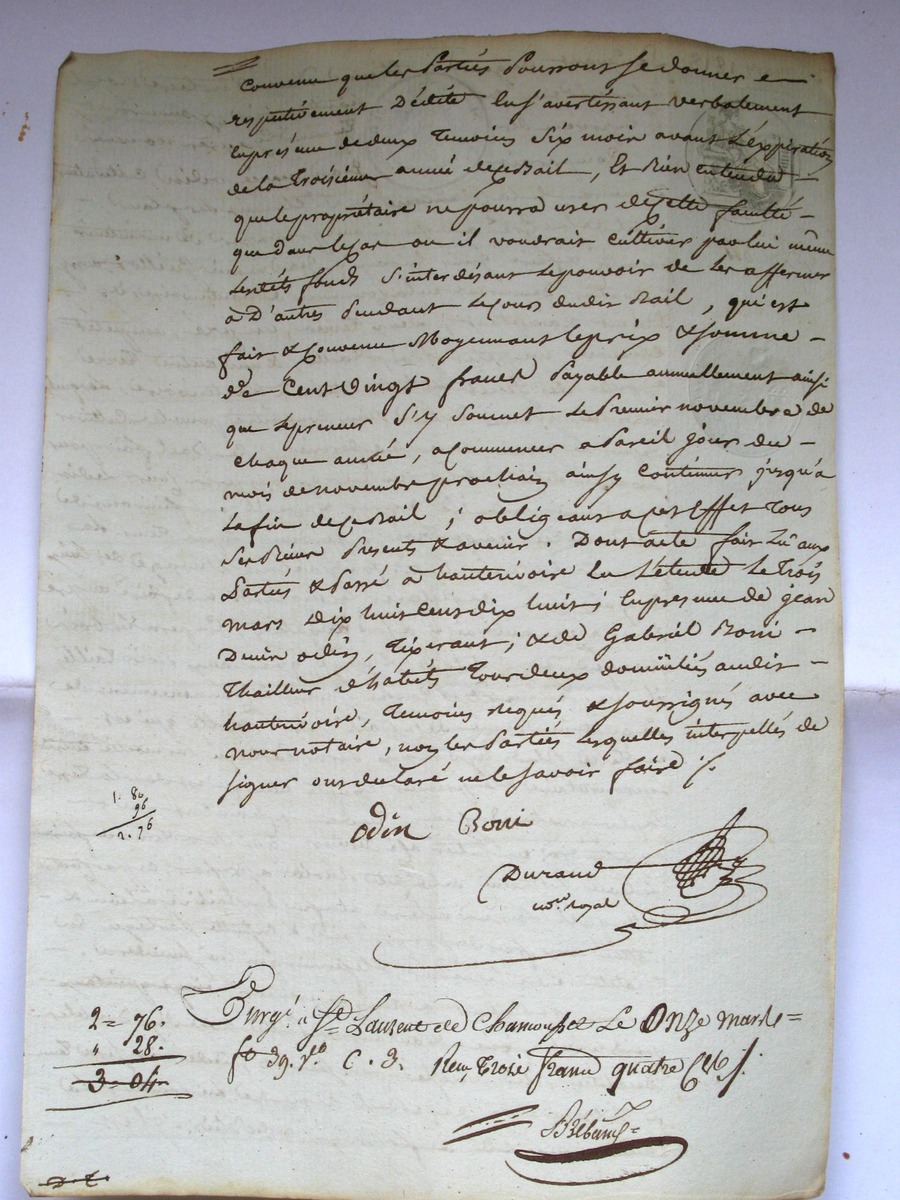 Convenu que les Parties Pourront se donner
respectivement Dédite en s'avertissant verbalement
En présence de deux Temoins Six mois avant L'expiration
de la Troisième année de ce Bail, Et Bien entendu
que le propriétaire ne pourra user de cette faculté
que dans le cas ou il voudrait cultiver par lui même
lesdits fonds S'interdisant le pouvoir de les affermer
à D'autres Pendant le Cours dudit Bail, qui est
fait & Convenu Moyennant le prix & somme
de Cent Vingt francs Payable annuellement ainsi
que le preneur S'y Soumet Le Premier novembre de
Chaque année, a Commencer a Pareil jour du
mois de novembre prochain ainsy Continuer jusqu'a
La fin de ce Bail; obligeant a cet Effet Tous
Ses Biens Presents & avenir. Dont acte fait Lu aux
Parties & Passé à hauterivoire En L'etude Le Trois
mars Dix huit Cent dix huit; En presence de jean
odin, Tixerant; & de Gabriel Boni
Thailleur d'habits Tous deux domiciliés audit
hauterivoire, Temoins Requis & soussignés avec
Nous notaire, non les Parties Lesquelles interpellés de
signer ont declaré ne le Savoir faire ./.
1. 80
96
2. 76
Odin Boni
Durand
nore royal
2 = 76.
" 28.
3 - 04
Enrgé à St Laurent de Chamousset Le Onze mars
fo 39. Vo C. 3. Reçu Trois francs quatre Ces ./.